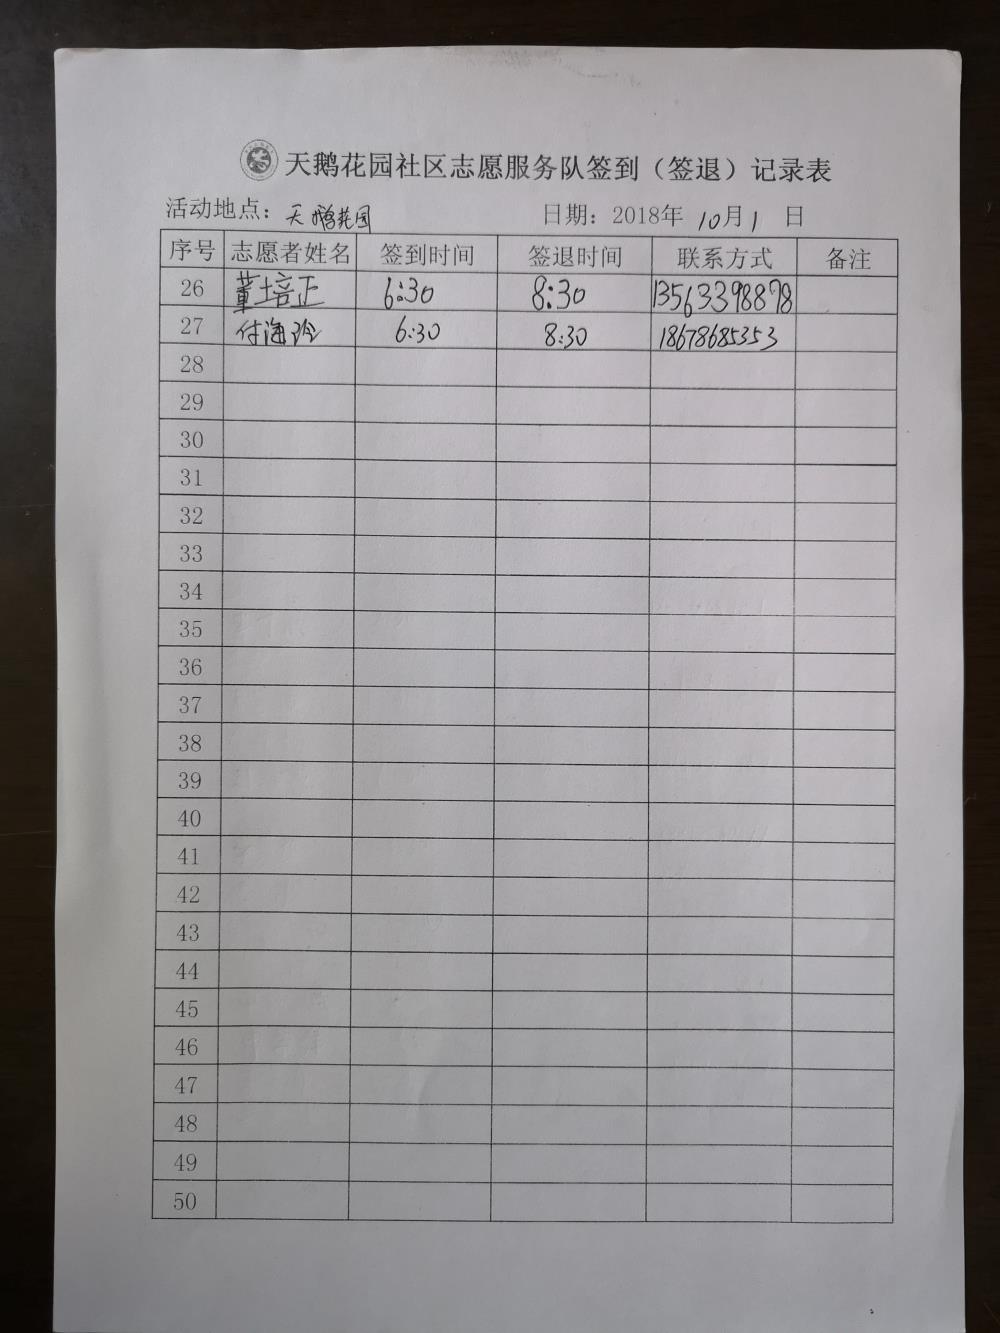 天鹅花园社区志愿服务队签到（签退）记录表
活动地点：天鹅花园 日期：2018年 10月1 日
序号 志愿者姓名 签到时间 签退时间 联系方式 备注
26 董培正 6:30 8:30 13563398878
27 付海玲 6:30 8:30 18678685353
28
29
30
31
32
33
34
35
36
37
38
39
40
41
42
43
44
45
46
47
48
49
50